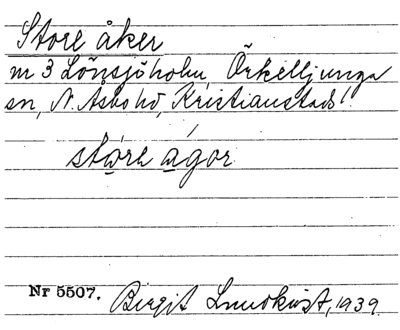 Store åker
m 3 Lönsjöholm, Örkelljunga
sn, N. Åsbo hd, Kristianstads l.
støre agor
Nr 5507. Birgit Lundkvist, 1939.